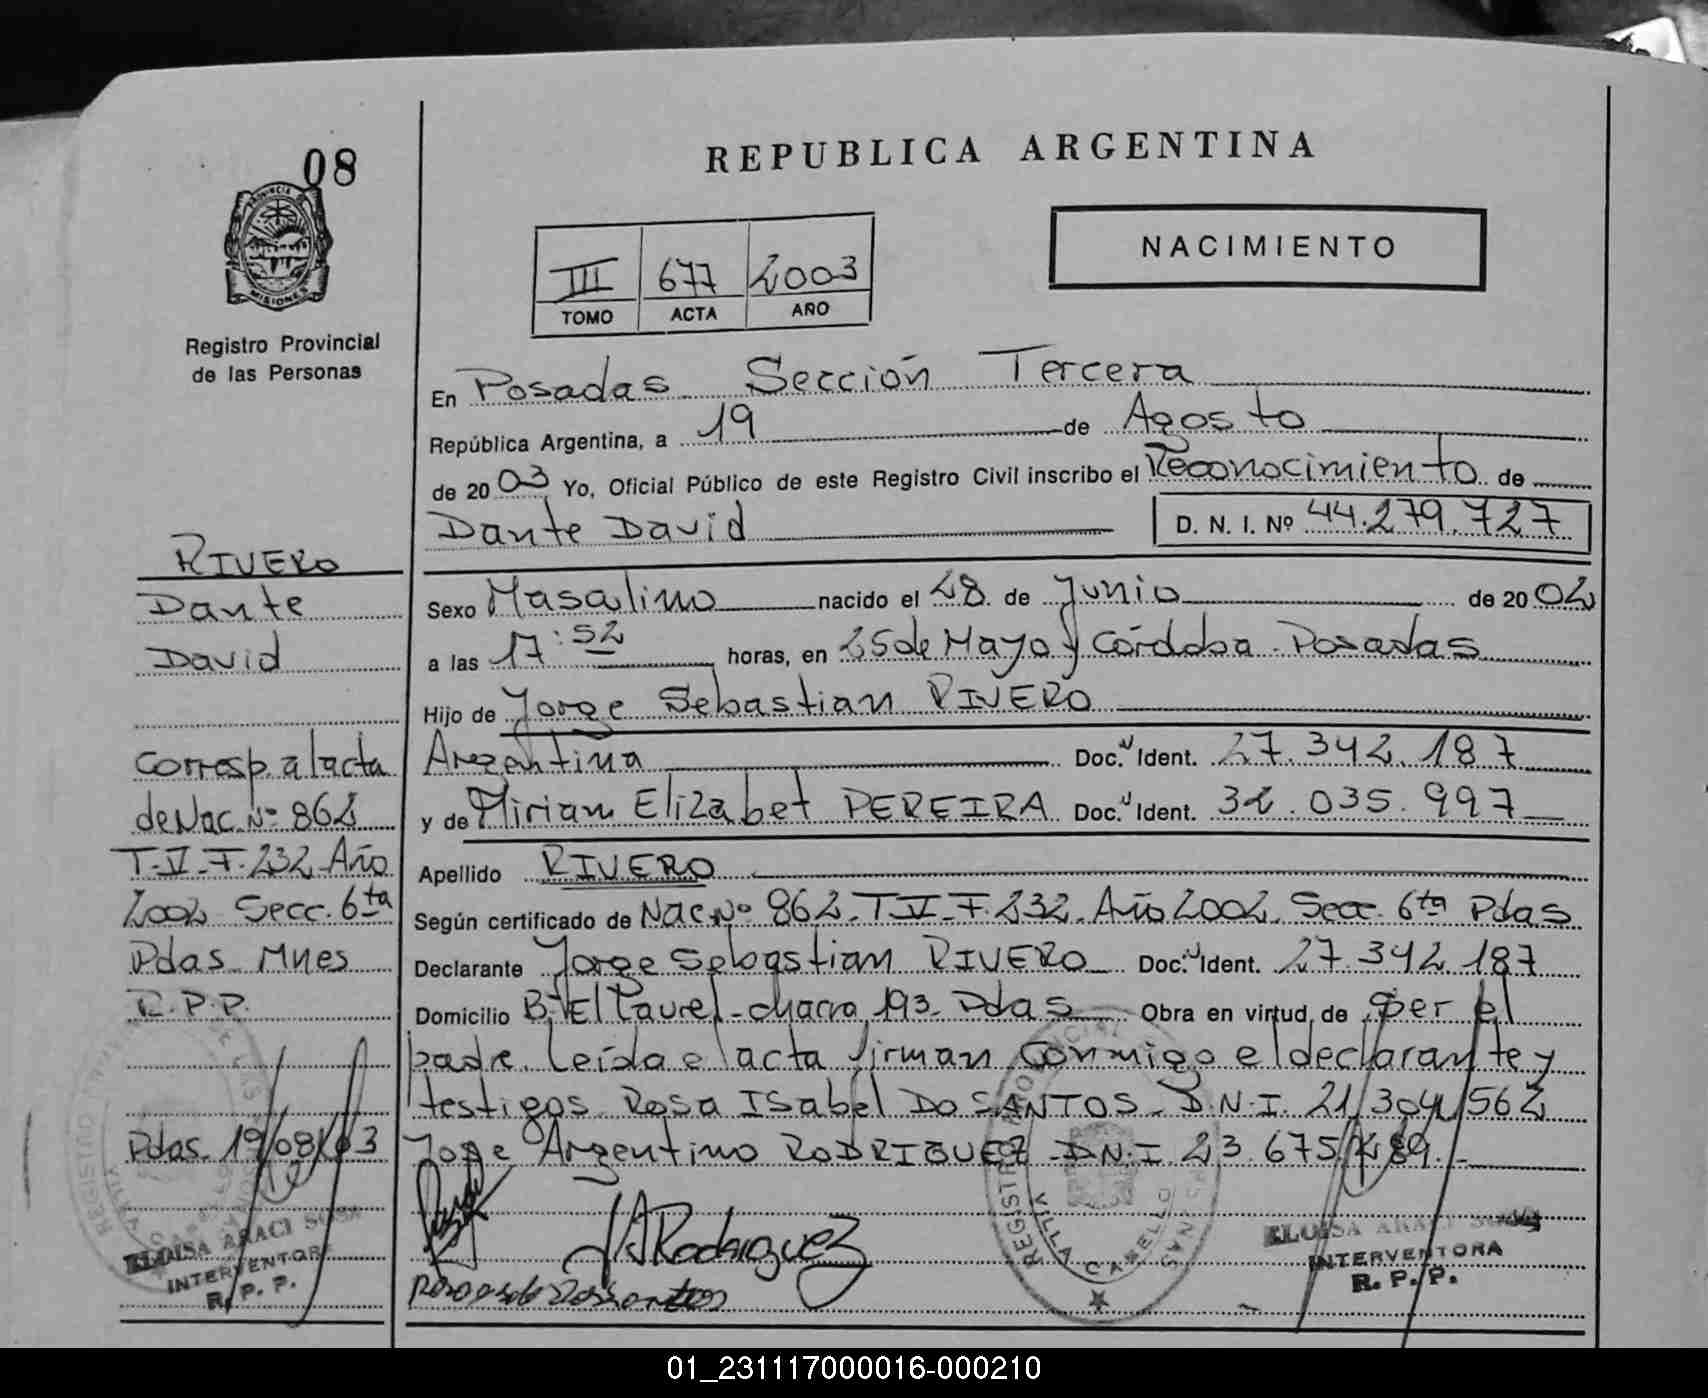 08
PROVINCIA
MISIONES
Registro Provincial
de las Personas
RIVERO
Dante
David
Corresp. a l acta
de Nac. Nº 862
T-V-F-232-Año
2002 Secc. 6ta
Pdas Mnes
R.P.P.
Pdas. 19/08/03
ELOISA ARACI SOSA
INTERVENTORA
R. P. P.
REPUBLICA ARGENTINA
III 677 2003
TOMO ACTA AÑO
NACIMIENTO
En Posadas Sección Tercera
República Argentina, a 19 de Agosto
de 20 03 Yo, Oficial Público de este Registro Civil inscribo el Reconocimiento de
Dante David D. N. I. Nº 44.279.727
Sexo Masculino nacido el 28 de Junio de 20 02
a las 17:52 horas, en 25 de Mayo y Córdoba - Posadas
Hijo de Jorge Sebastian RIVERO
Argentina Doc. Ident. 27.342.187
y de Mirian Elizabet PEREIRA Doc. Ident. 32.035.997
Apellido RIVERO
Según certificado de Nac. Nº 862-T V-F.232. Año 2002 Secc. 6ta Pdas
Declarante Jorge Sebastian RIVERO Doc. Ident. 27.342.187
Domicilio Bº El Laurel - chacra 193 - Pdas Obra en virtud de Ser el
padre. Leída el acta firman conmigo el declarante y
testigos Rosa Isabel DO SANTOS - D.N.I. 21.304.562
Jose Argentino RODRIGUEZ - D.N.I. 23.675.289.-
JARodriguez
REGISTRO PROVINCIAL DE LAS PERSONAS
VILLA CABELLO
ELOISA ARACI SOSA
INTERVENTORA
R. P. P.
01_231117000016-000210